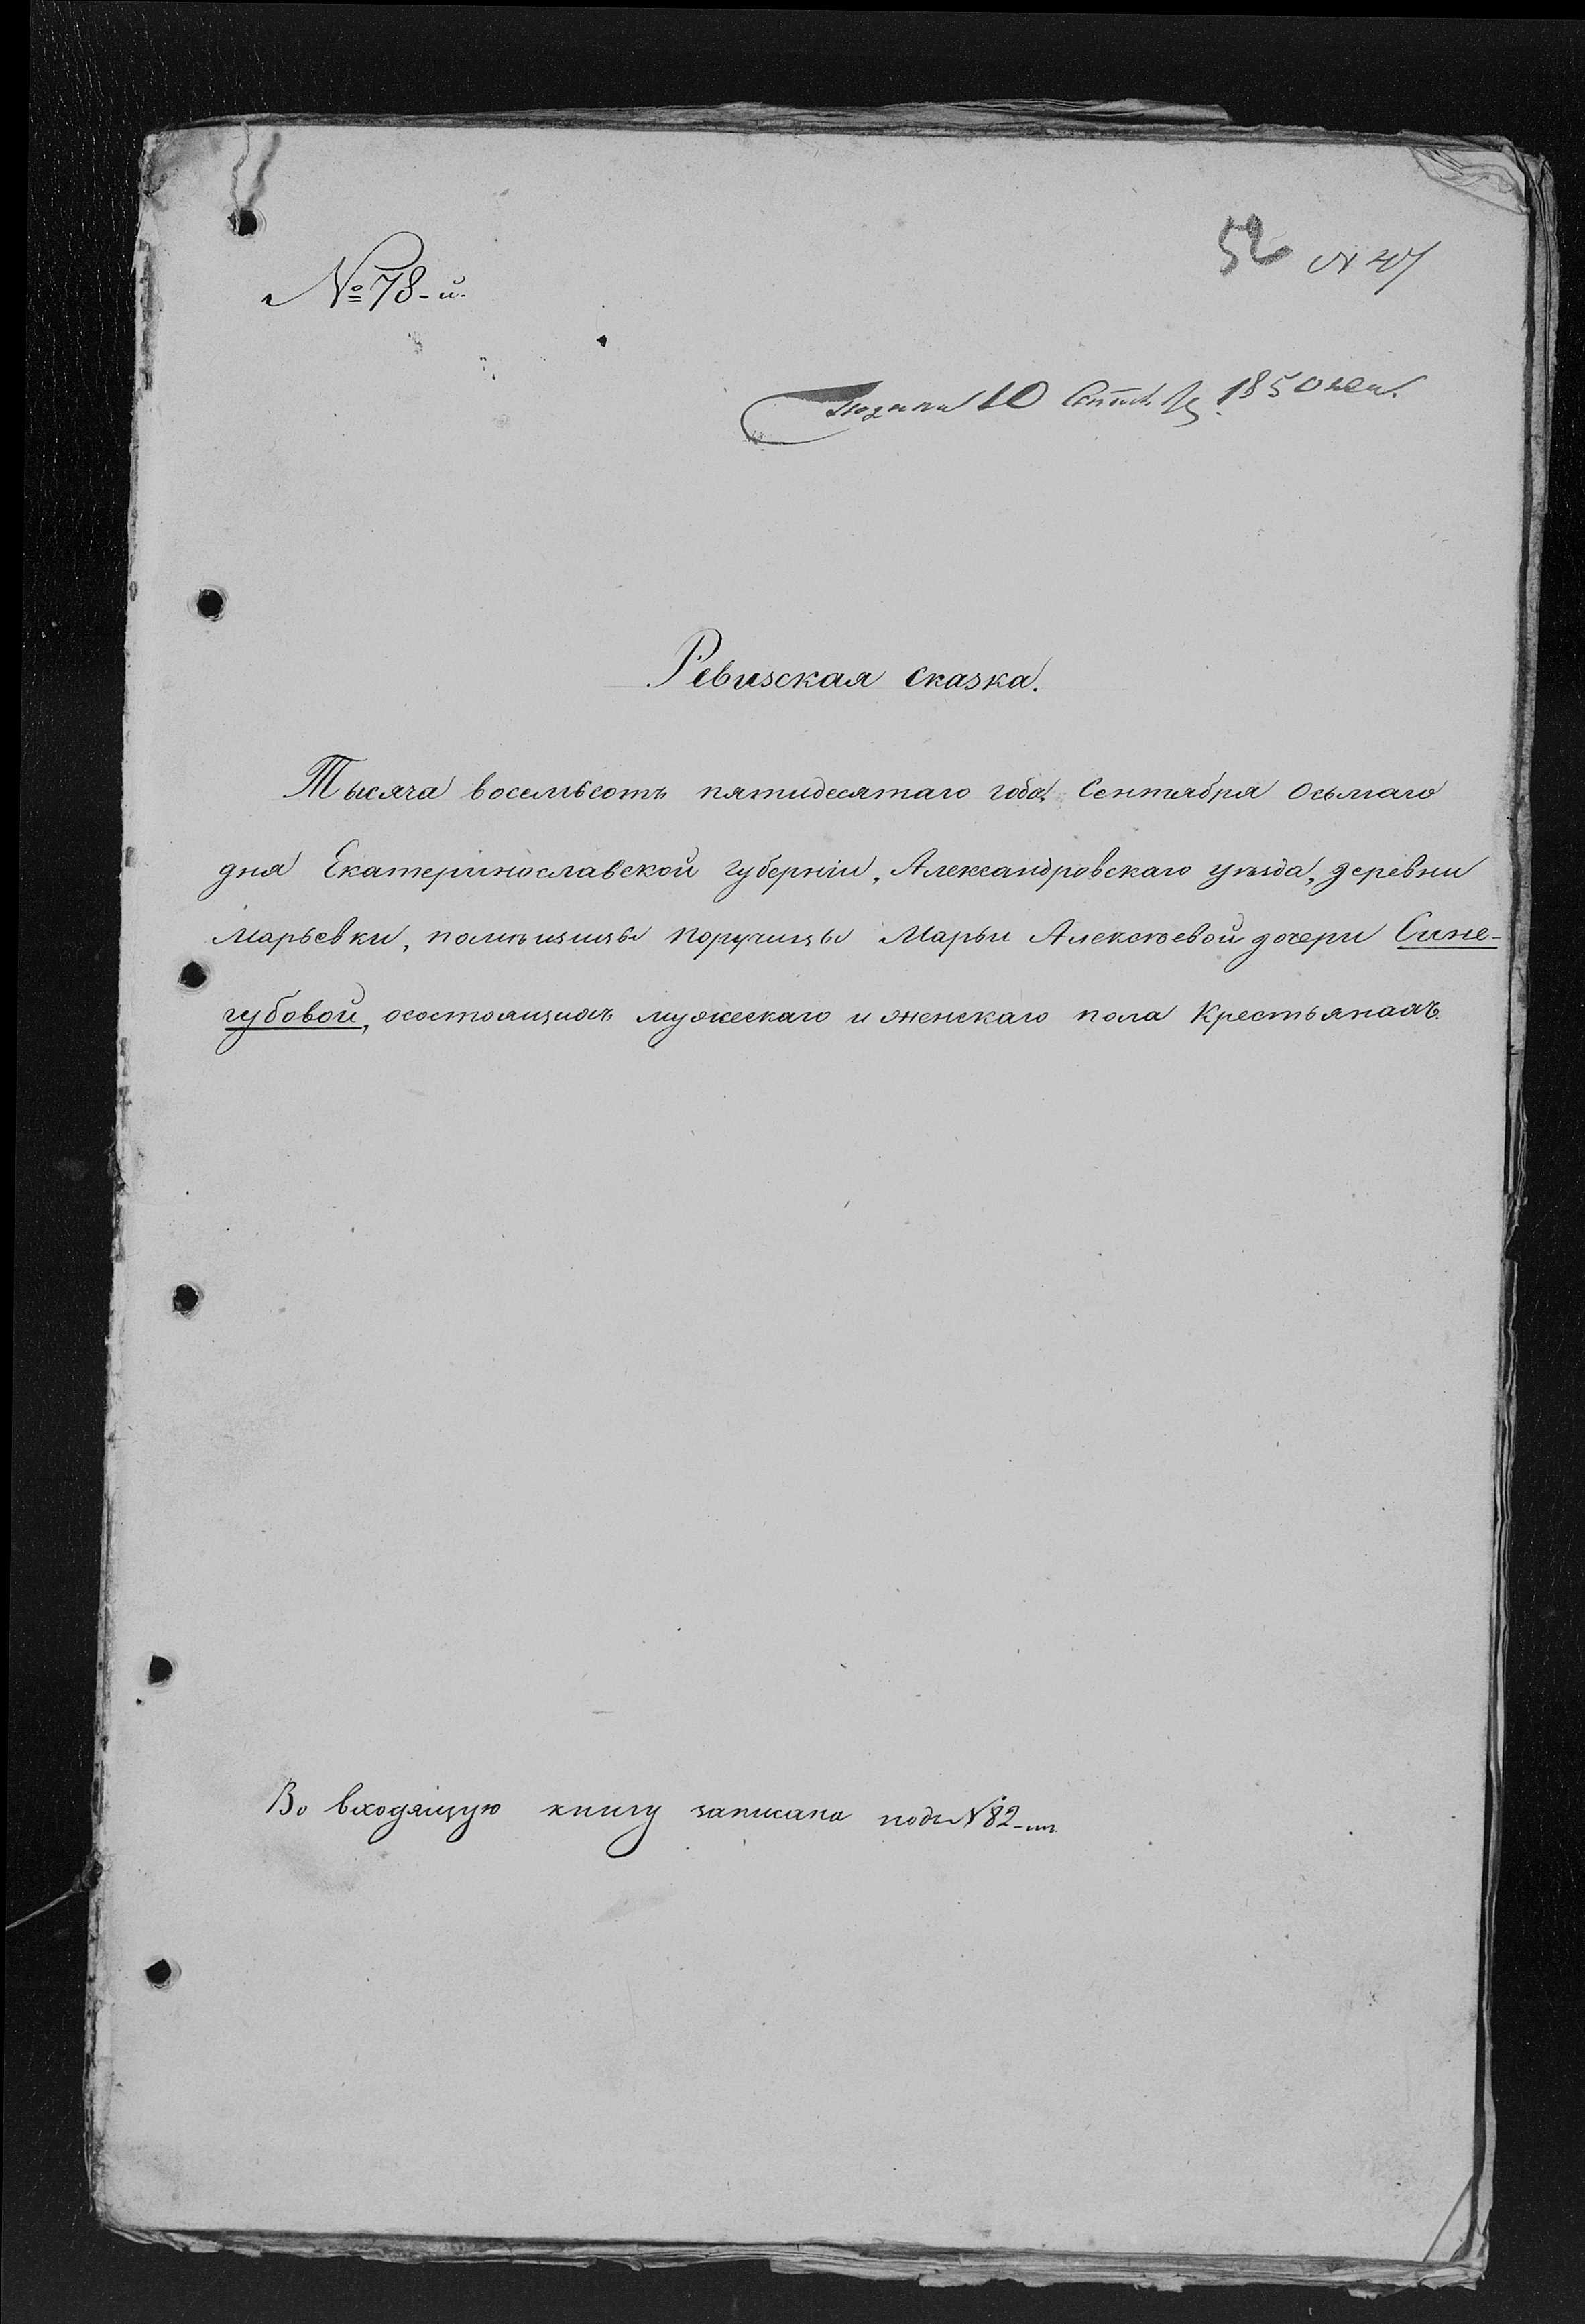 52 № 47
№ 78-й.
Подана 10 Сентяб. 1850 года.
Ревизская сказка.
Тысяча восемьсотъ пятидесятаго года Сентября Осьмаго
дня Екатеринославской губерніи, Александровскаго уѣзда, деревни
Марьевки, помѣщицы поручицы Марьи Алексѣевой дочери Сине-
губовой, о состоящихъ мужескаго и женскаго пола крестьянахъ.
Во входящую книгу записана подъ № 82-мъ